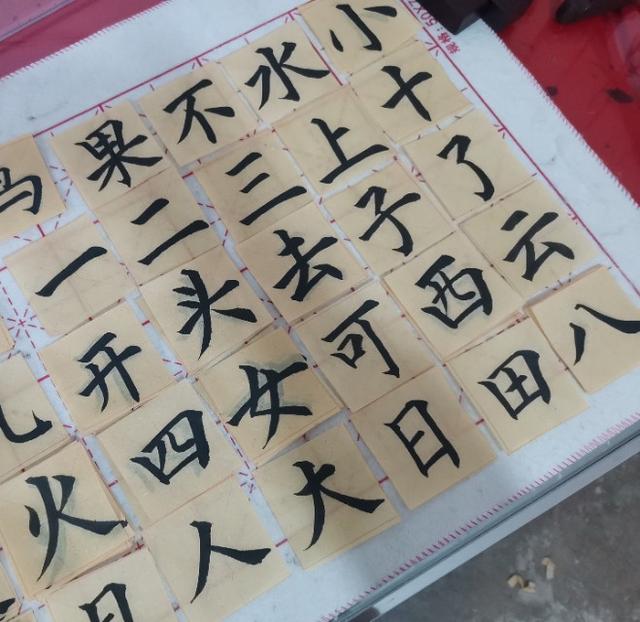 鸟果不水小
一二三上十
开头去子了
火四女可西云
人大日田八